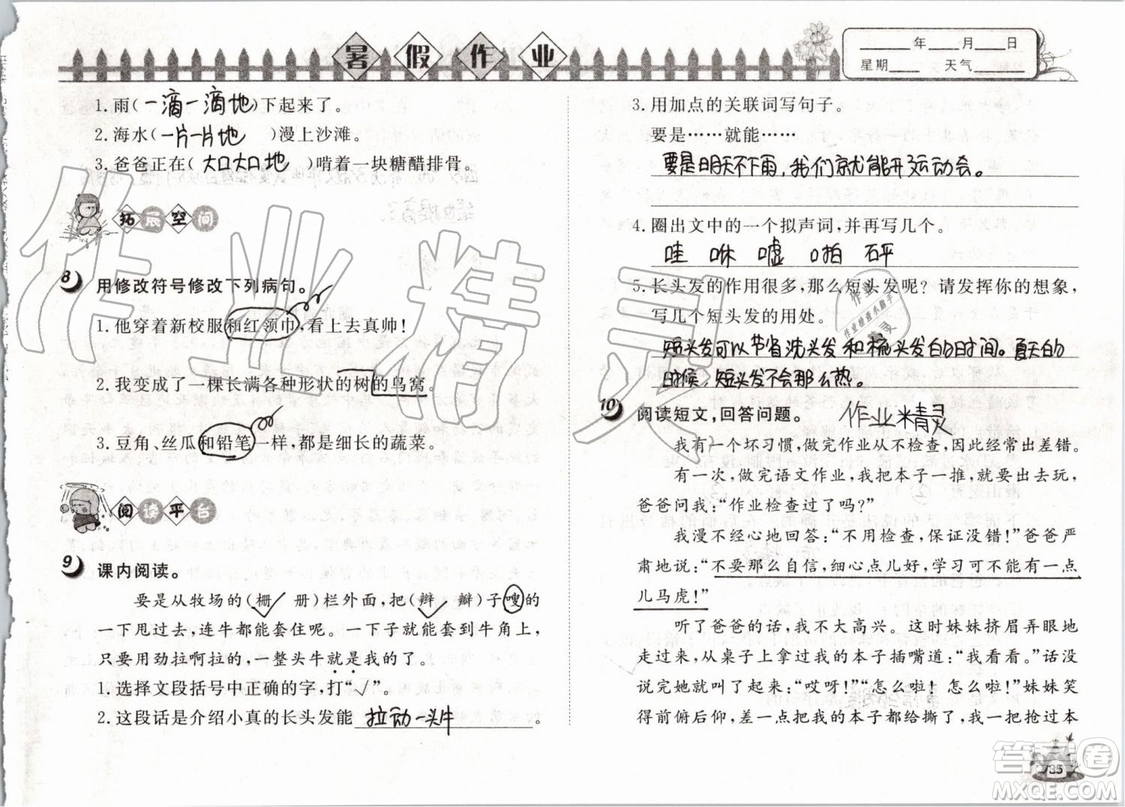 暑假作业
____年____月____日
星期____ 天气____
1.雨(一滴一滴地)下起来了。
2.海水(一片一片地)漫上沙滩。
3.爸爸正在(大口大口地)啃着一块糖醋排骨。
拓展空间
8 用修改符号修改下列病句。
1.他穿着新校服和红领巾,看上去真帅!
2.我变成了一棵长满各种形状的树的鸟窝。
3.豆角、丝瓜和铅笔一样,都是细长的蔬菜。
阅读平台
9 课内阅读。
要是从牧场的(栅 册)栏外面,把(辫 瓣)子嗖的
一下甩过去,连牛都能套住呢。一下子就能套到牛角,
只要用劲拉啊拉的,一整头牛就是我的了。
1.选择文段括号中正确的字,打“√”。
2.这段话是介绍小真的长头发能 拉动一头牛 。
3.用加点的关联词写句子。
要是……就能……
要是明天不下雨,我们就能开运动会。
4.圈出文中的一个拟声词,并再写几个。
哇 咻 嘘 啪 砰
5.长头发的作用很多,那么短头发呢?请发挥你的想象,
写几个短头发的用处。
短头发可以节省洗头发和梳头发的时间。夏天的
时候,短头发不会那么热。
10 阅读短文,回答问题。
作业精灵
我有一个坏习惯,做完作业从不检查,因此经常出差错。
有一次,做完语文作业,我把本子一推,就要去玩。
爸爸问我:“作业检查过了吗?”
我漫不经心地回答:“不用检查,保证没错!”爸爸严
肃地说:“不要那么自信,细心点儿好,学习可不能有一点
儿马虎!”
听了爸爸的话,我不大高兴。这时妹妹挤眉弄眼地
走过来,从桌子上拿过我的本子插嘴道:“我看看。”话
没说完,就听她尖叫一声:“哎呀!”“怎么啦!怎么啦!”妹妹笑
得前俯后仰,差一点把我的本子都给撕了,我一把抢过本
35
作业精灵
答案圈
MXQE.COM